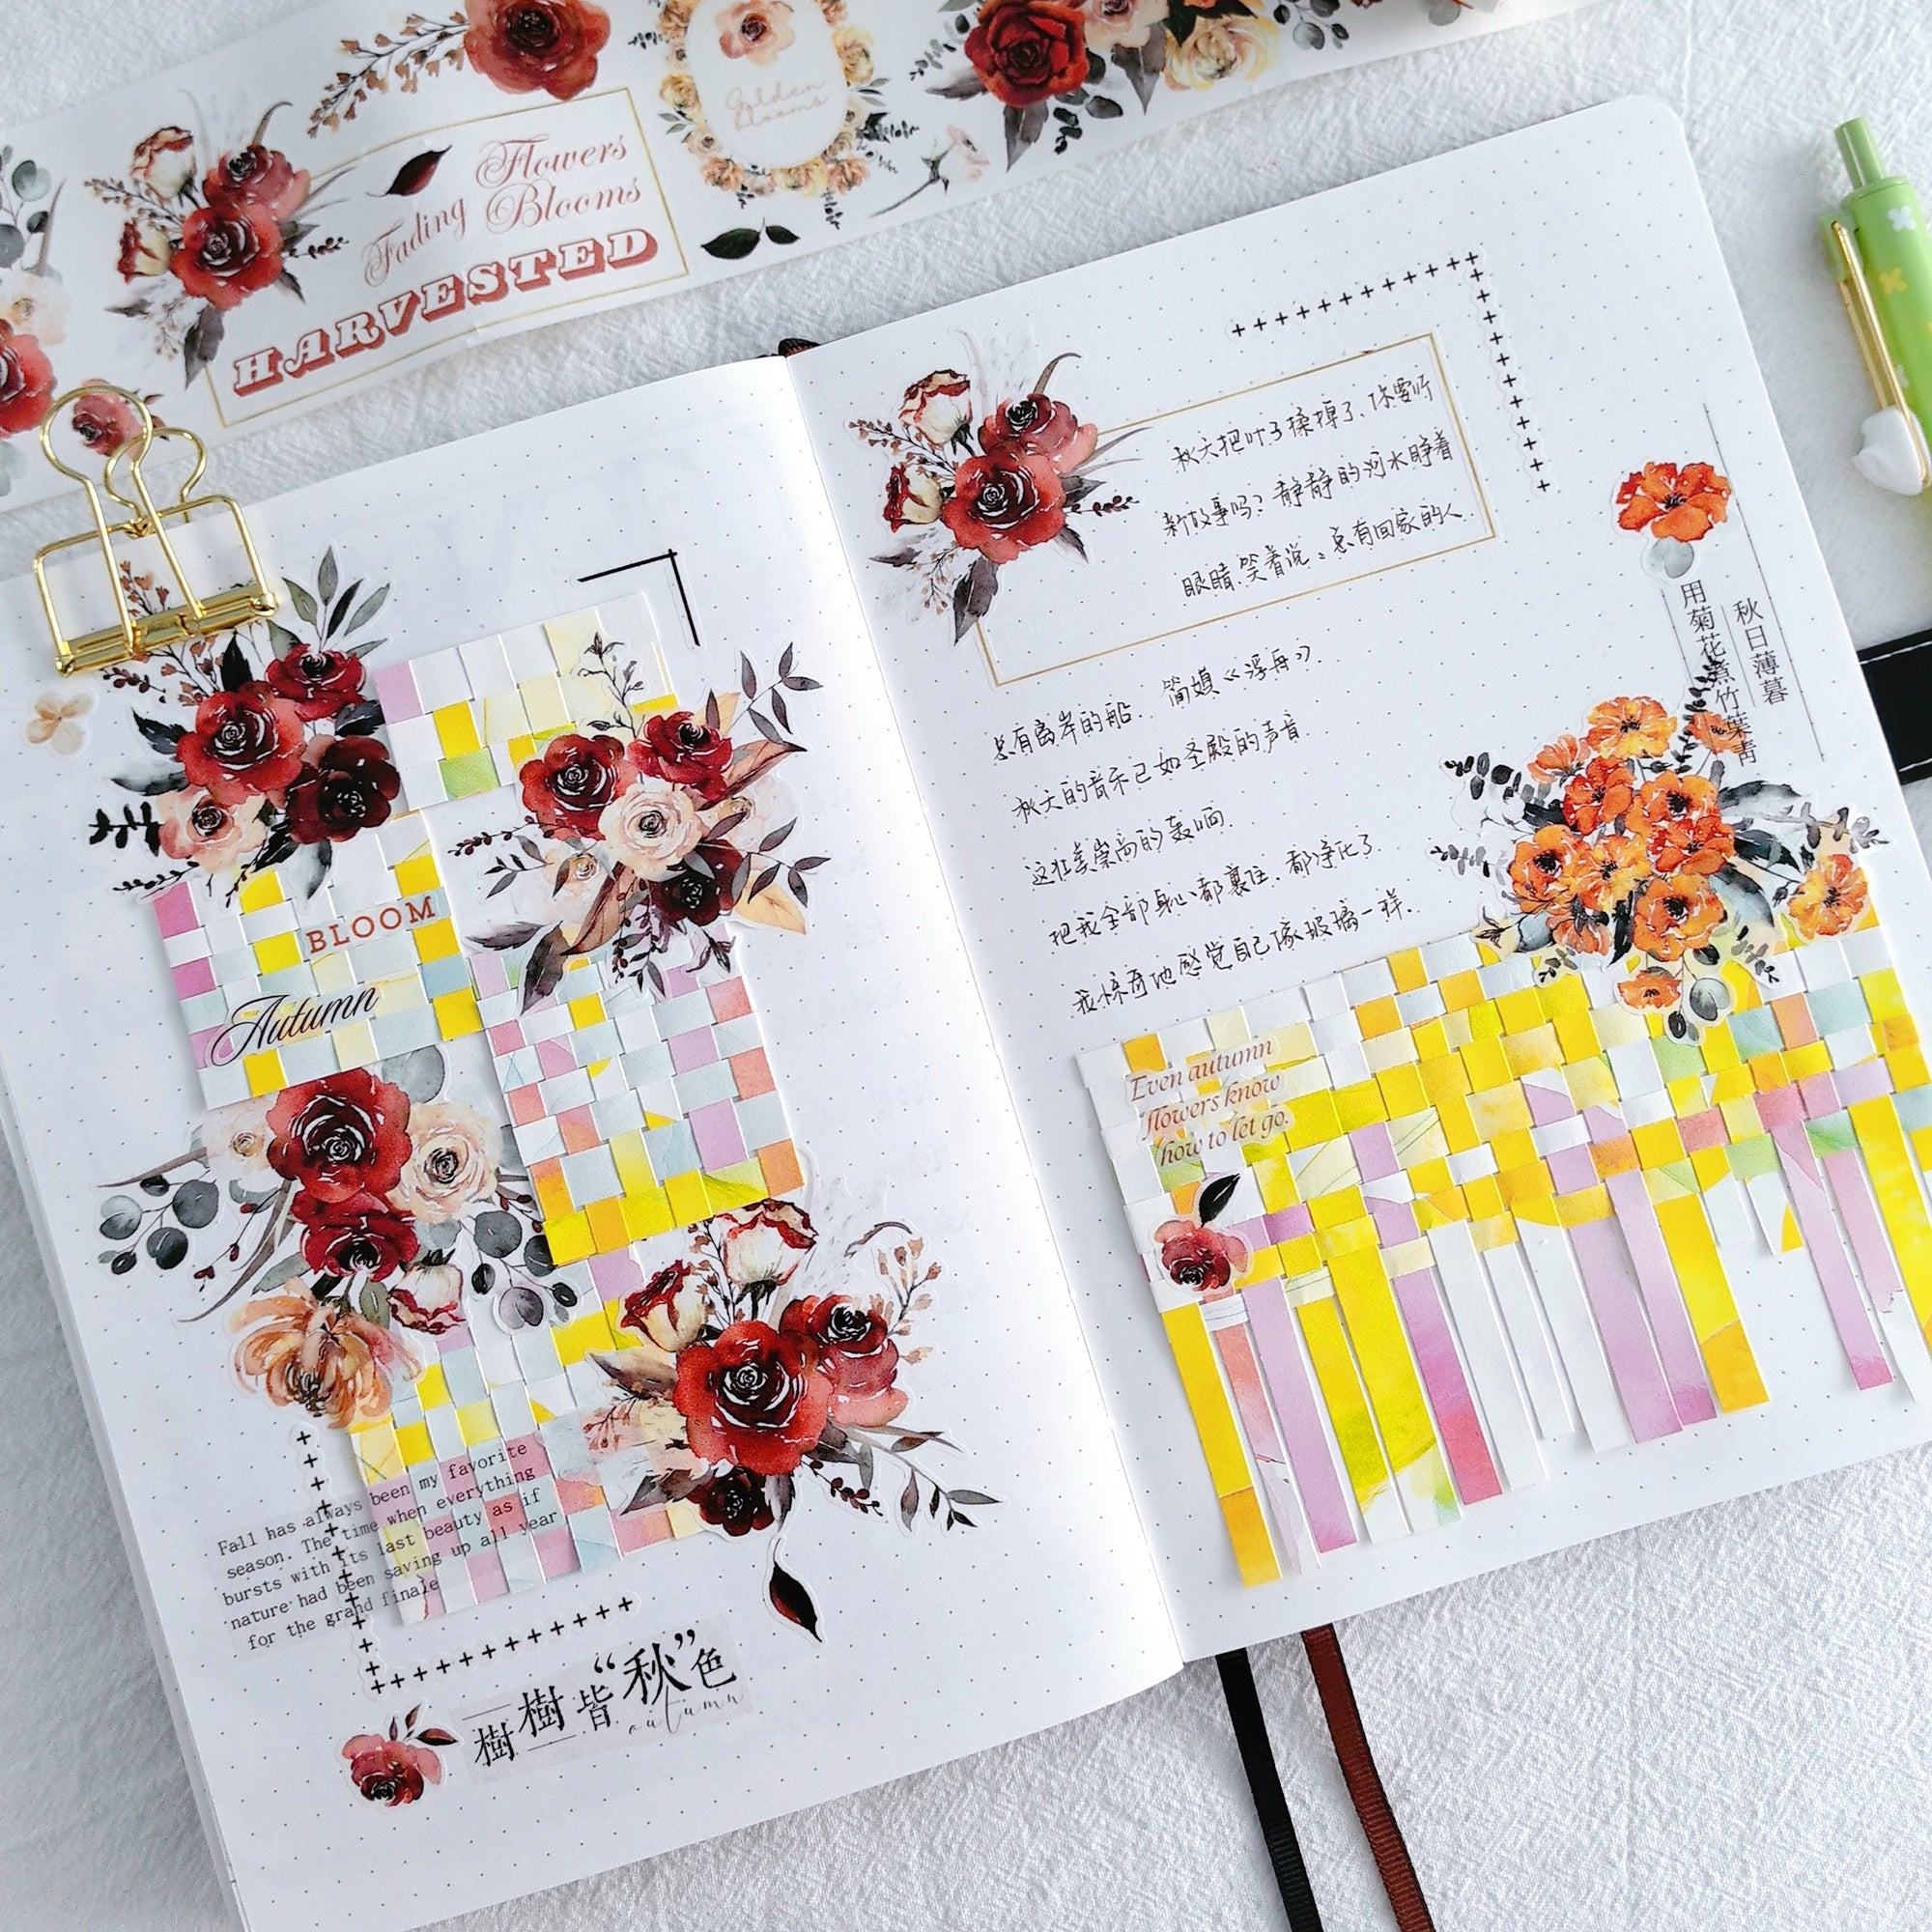 Flowers
Fading Blooms
HARVESTED
Golden
blooms
BLOOM
Autumn
Fall has always been my favorite
season. The time when everything
bursts with its last beauty as if
nature had been saving up all year
for the grand finale
樹樹皆“秋”色
autumn
秋天把叶子揉掉了,你要听
新故事吗?静静的河水睁着
眼睛,笑着说:总有回家的人
总有离岸的船. 简媜《浮舟》.
秋天的音乐已如圣殿的声音.
这壮美崇高的轰响.
把我全部身心都裹住.都净化了.
我惊奇地感觉自己像玻璃一样.
秋日薄暮
用菊花煮竹葉青
Even autumn
flowers know
how to let go.